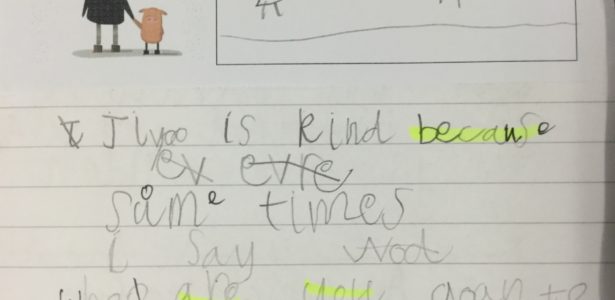 Jiyoo is kind because
ev evre
some times
i say Woot
what are you goan to